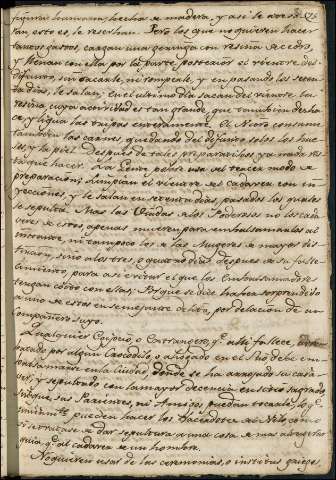 figura humana, hecha de madera, y asi le
tan esto es, le reservan. Pero los que no quieren hacer
tantos gastos, cargan una geringa con resina de cedro,
y llenan con ella por la parte posterior el vientre del
difunto, sin sacarle, ni romperle, y en pasando los seten
ta dias, le salan, en el ultimo dia sacan del vientre la
resina, cuya actividad es tan grande, que tambien desha
ce, y liquia las tripas enteramente. El Nitro consume
tambien las carnes, quedando del difunto solos los hue
sos, y la piel. Despues de tales preparativos ya nada res
ta que hacer. La Plebe usa el tercer modo de
preparacion; limpian el vientre del cadaver con in
yecciones, y le salan en setenta dias, pasados los quales
le sepulta. Mas las Viudas de los Poderosos no los cada
veres de estos apenas mueren para embalsamarles al
instante, ni tampoco los de las Mugeres de mayor dis
tincion, sino a los tres, o quatro dias despues de su falle
cimiento, para asi evitar el que los Embalsamadores
tengan coito con ellas; Porque se dice haber sorprendido
a uno de estos en semejante delito, por delacion de un
compañero suyo.
Qualquier Egipcio o Estrangero, q.e asi fallece,
batado por algun Cocodrilo o ahogado en el Rio debe em
balsamarse en la Ciudad, donde se ha arrojado su cada
ver, y sepultado con la mayor decencia en sitio sagrado,
sin que sus Parientes, ni Amigos puedan tocarle, lo q.e
unicam.te pueden hacer los Sacerdotes del Nilo, como
si tratase de dar sepultura a una cosa de mas alta
quia q.e al cadaver de un hombre.
No quieren usar de las ceremonias, o institus griegos,